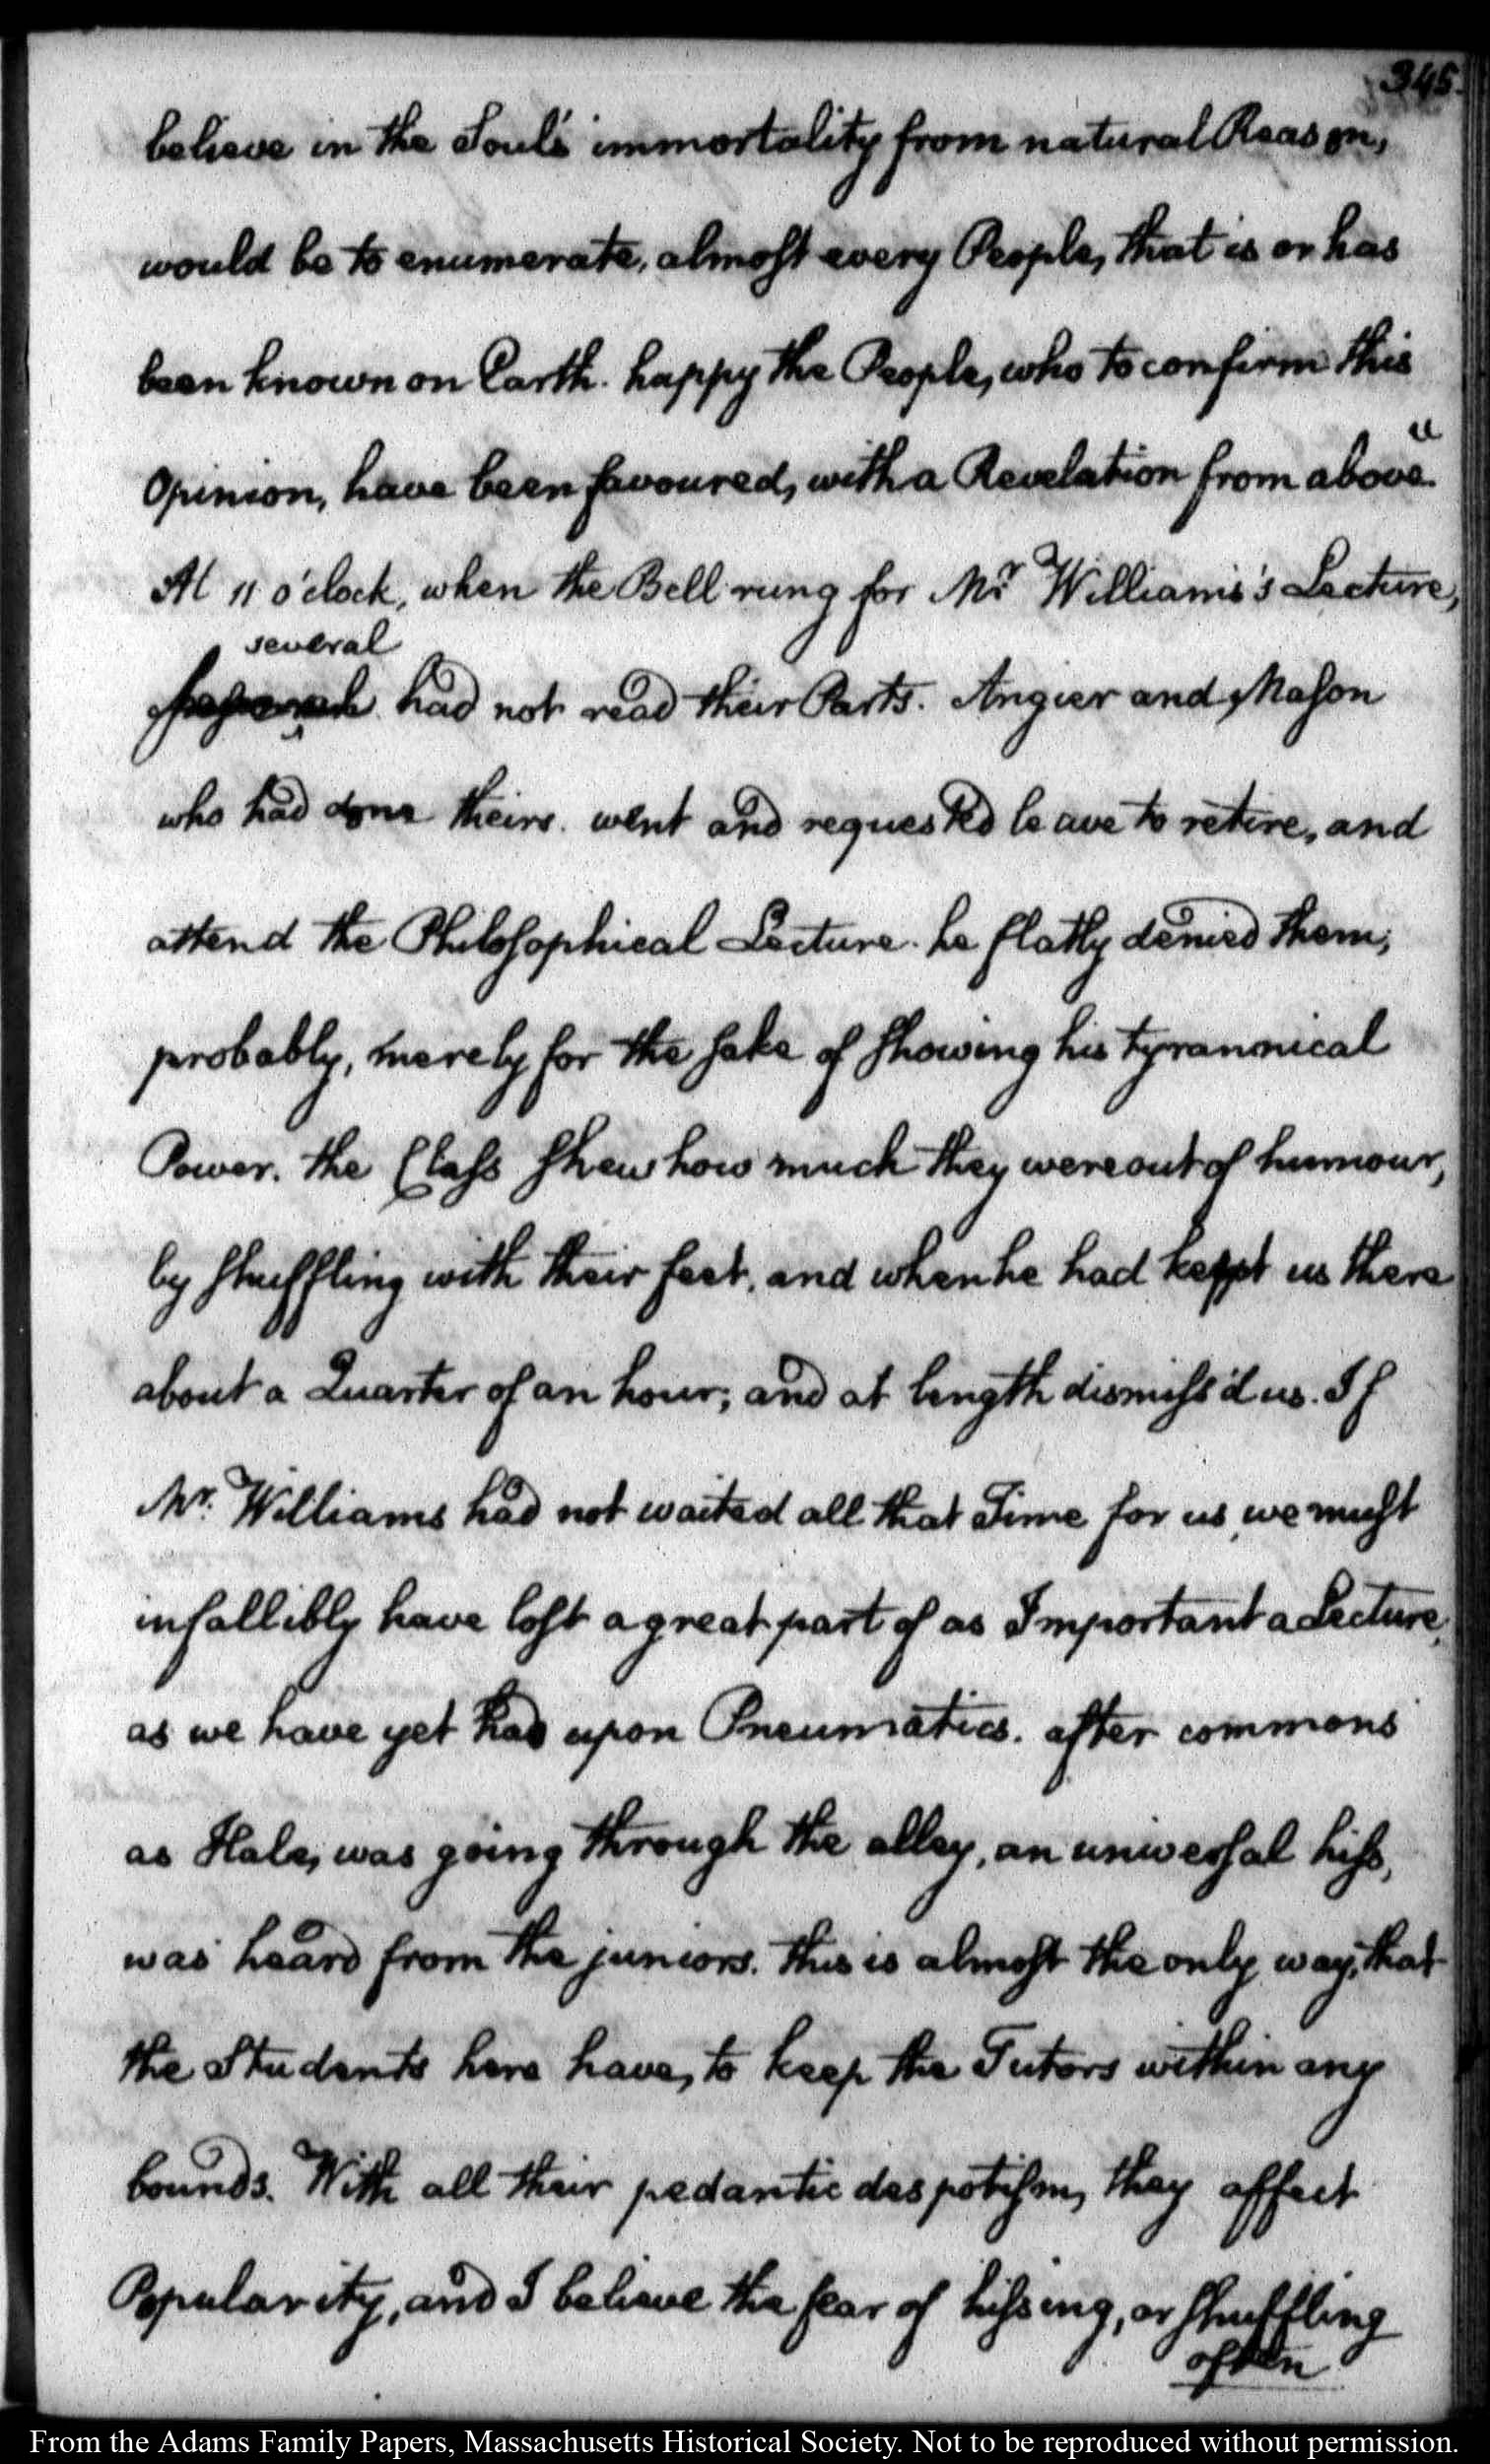 345.
believe in the Soul's immortality from natural Reason,
would be to enumerate, almost every People, that is or has
been known on Earth. happy the People, who to confirm this
Opinion, have been favoured, with a Revelation from above."
At 11 o'clock, when the Bell rung for Mr. Williams's Lecture,
several
had not read their Parts. Angier and Mason
who had done theirs. went and requested leave to retire, and
attend the Philosophical Lecture. he flatly denied them,
probably, merely for the sake of showing his tyrannical
Power. the Class shew how much they were out of humour,
by shuffling with their feet, and when he had kept us there
about a Quarter of an hour; and at length dismiss'd us. If
Mr. Williams had not waited all that Time for us, we must
infallibly have lost a great part of as Important a Lecture,
as we have yet had upon Pneumatics. after commons
as Hale, was going through the alley, an universal hiss,
was heard from the juniors. this is almost the only way, that
the Students here have, to keep the Tutors within any
bounds. With all their pedantic despotism, they affect
Popularity, and I believe the fear of hissing, or shuffling
often
From the Adams Family Papers, Massachusetts Historical Society. Not to be reproduced without permission.